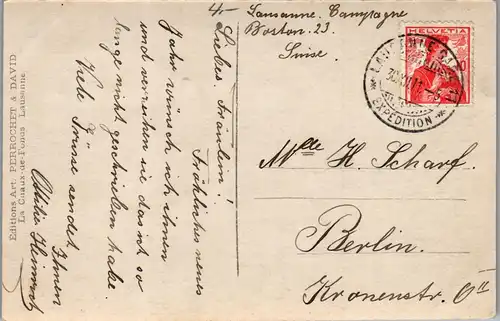 4.-
Lausanne. Campagne
Boston. 23
Suise.
Liebes Fräulein!
Fröhliches neues
Jahr wünsch ich ihnen
und verzeihen sie das ich so
lange nicht geschrieben habe.
Viele Grüsse sendet
Ihnen
HELVETIA
10
LAUSANNE GARE
EXPEDITION
Mlle H. Scharf.
Berlin.
Kronenstr. 6 II
Editions Art. PERROCHET & DAVID
La Chaux-de-Fonds Lausanne